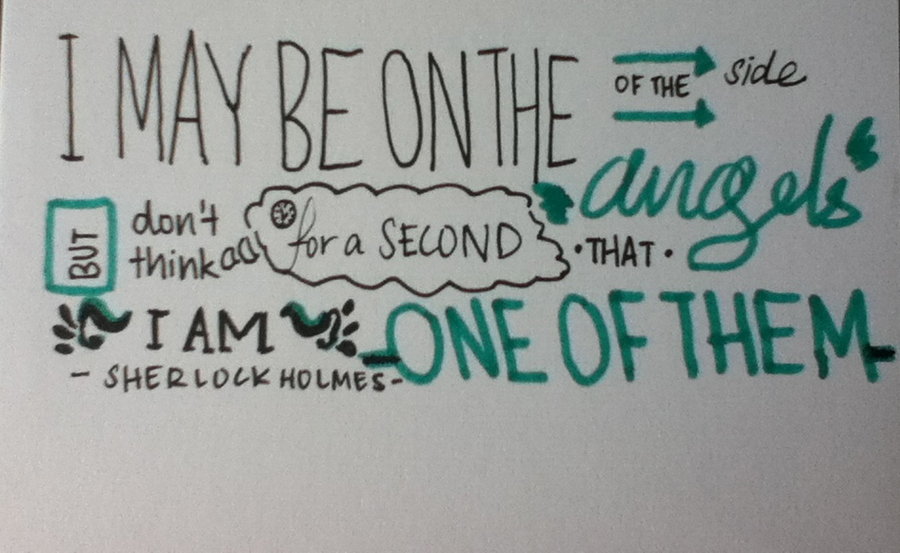 I MAY BE ON THE OF THE side
angels
BUT don't think for a SECOND • THAT •
I AM ONE OF THEM
- SHERLOCK HOLMES -